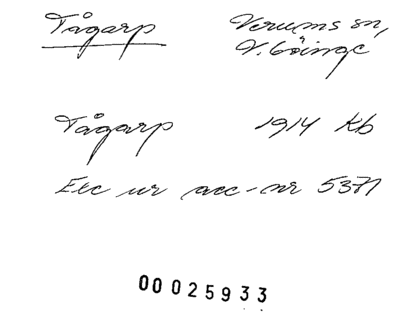 Tågarp Verums sn,
V. Göinge
Tågarp 1914 Kb
Exc ur acc-nr 5371
00025933